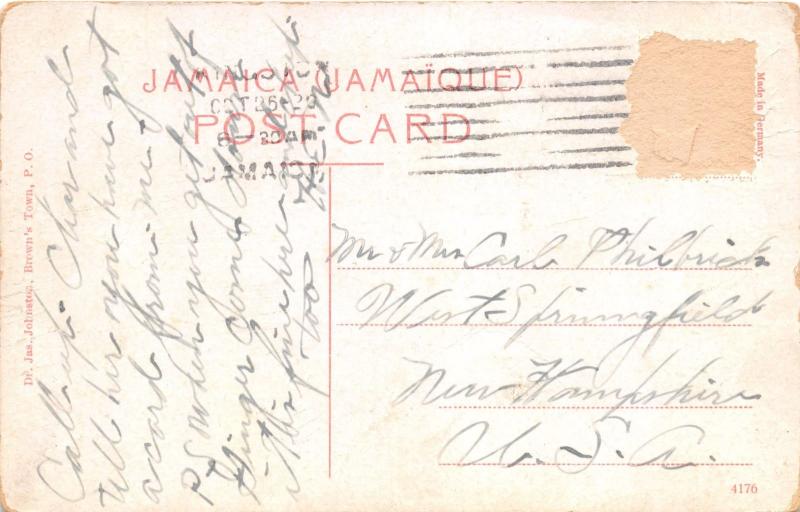 JAMAICA (JAMAÏQUE)
POST CARD
OCT 26 29
8 – 30 AM
JAMAICA
Made in Germany.
Dr. Jas. Johnston, Brown's Town, P. O.
Call up Char and
tell her you have got
a card from me
PS When you get out of
Ginger come
it is fine here
too
Mr & Mrs Carl Philbrick
West Springfield
New Hampshire
U. S. A.
4176